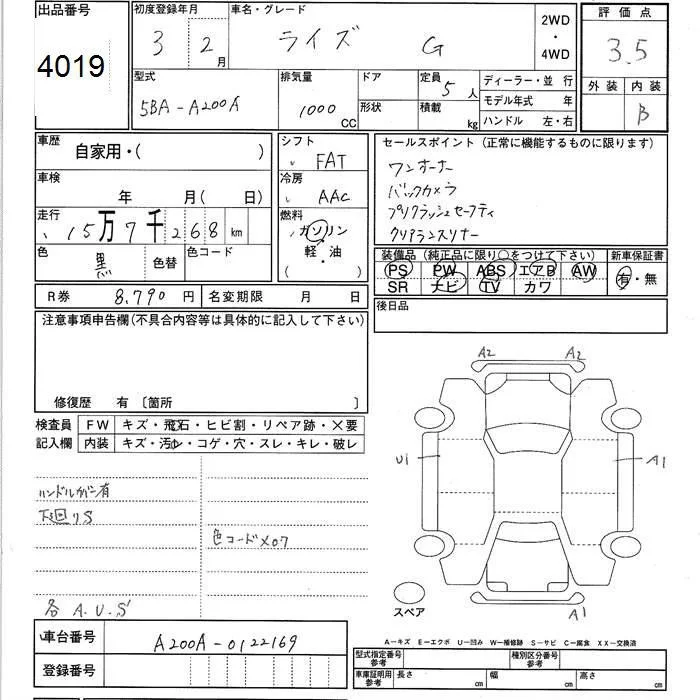 出品番号
4019
初度登録年月
3 2月
車名・グレード
ライズ G
2WD
・
4WD
評価点
3.5
型式
5BA-A200A
排気量
1000 CC
ドア
形状
定員 5人
積載 kg
ディーラー・並行
モデル年式 年
ハンドル 左・右
外装 内装
B
車歴
自家用・( )
シフト
FAT
セールスポイント (正常に機能するものに限ります)
ワンオーナー
バックカメラ
プリクラッシュセーフティ
クリアランスソナー
車検
年 月( 日)
冷房
AAC
走行
15万7千268 km
燃料
ガソリン
・
軽・油
・( )
色
黒
色替
色コード
装備品 (純正品に限り○をつけて下さい)
PS PW ABS エアB AW
SR ナビ TV カワ
新車保証書
有・無
R券 8.790 円
名変期限 月 日
後日品
注意事項申告欄(不具合内容等は具体的に記入して下さい)
修復歴 有 〔箇所 〕
検査員
記入欄
FW キズ・飛石・ヒビ割・リペア跡・×要
内装 キズ・汚レ・コゲ・穴・スレ・キレ・破レ
ハンドルガー有
下廻りS
色コードX07
各 A.U.S
A2 A2
U1
A1
A1
スペア
A-キズ E-エクボ U-凹み W-補修跡 S-サビ C-腐食 XX-交換済
車台番号
A200A-0122169
登録番号
型式指定番号
参考
種別区分番号
参考
車庫証明用
参考
長さ cm
幅 cm
高さ cm